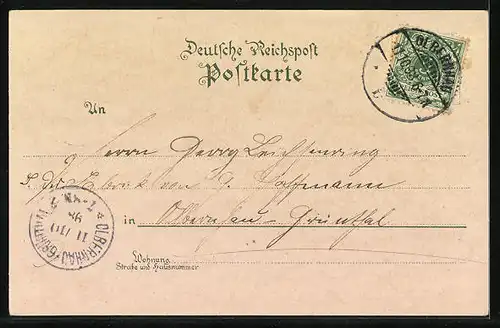 Deutsche Reichspost
Postkarte
OLBERNHAU
An
Herrn Georg Leichsenring
z. d. Fabrik von J. Hoffmann
in Olbernhau-Grünthal
OLBERNHAU-GRÜNTHAL
Wohnung
Straße und Hausnummer